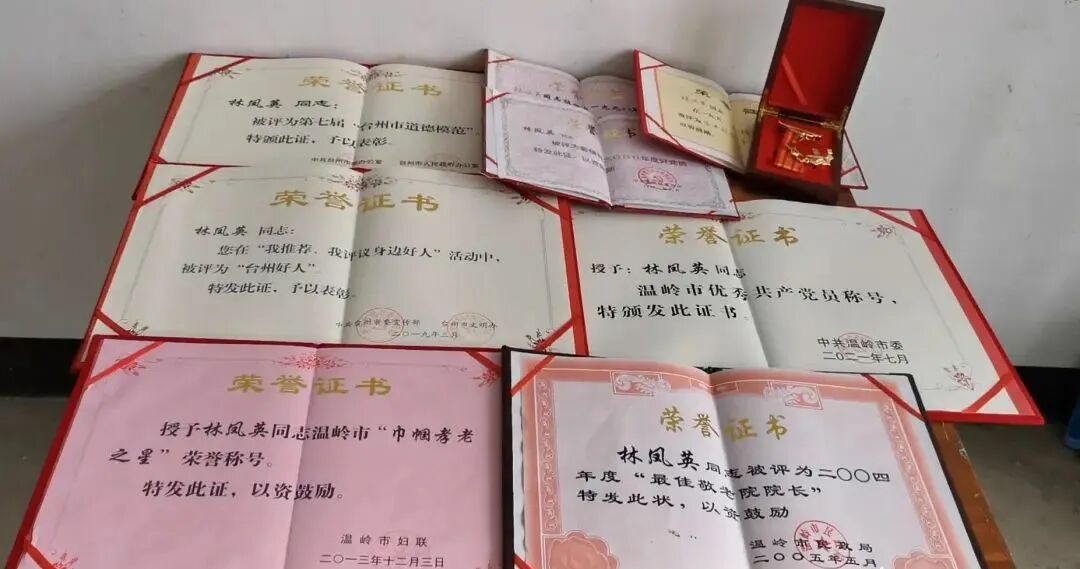 荣誉证书
林凤英 同志：
被评为第七届“台州市道德模范”。
特颁此证，予以表彰。
荣誉证书
林凤英
特发此证，以资
荣誉证书
林凤英 同志：
您在“我推荐、我评议身边好人”活动中，
被评为“台州好人”。
特发此证，予以表彰。
中共台州市委宣传部 台州市文明办
二〇一九年三月
荣誉证书
授予：林凤英同志
温岭市优秀共产党员称号，
特颁发此证书。
中共温岭市委
二〇二一年七月
荣誉证书
授予林凤英同志温岭市“巾帼孝老
之星”荣誉称号。
特发此证，以资鼓励。
温岭市妇联
二〇一三年十二月三日
荣誉证书
林凤英同志被评为二〇〇四
年度“最佳敬老院院长”
特发此状，以资鼓励
温岭市民政局
二〇〇五年五月